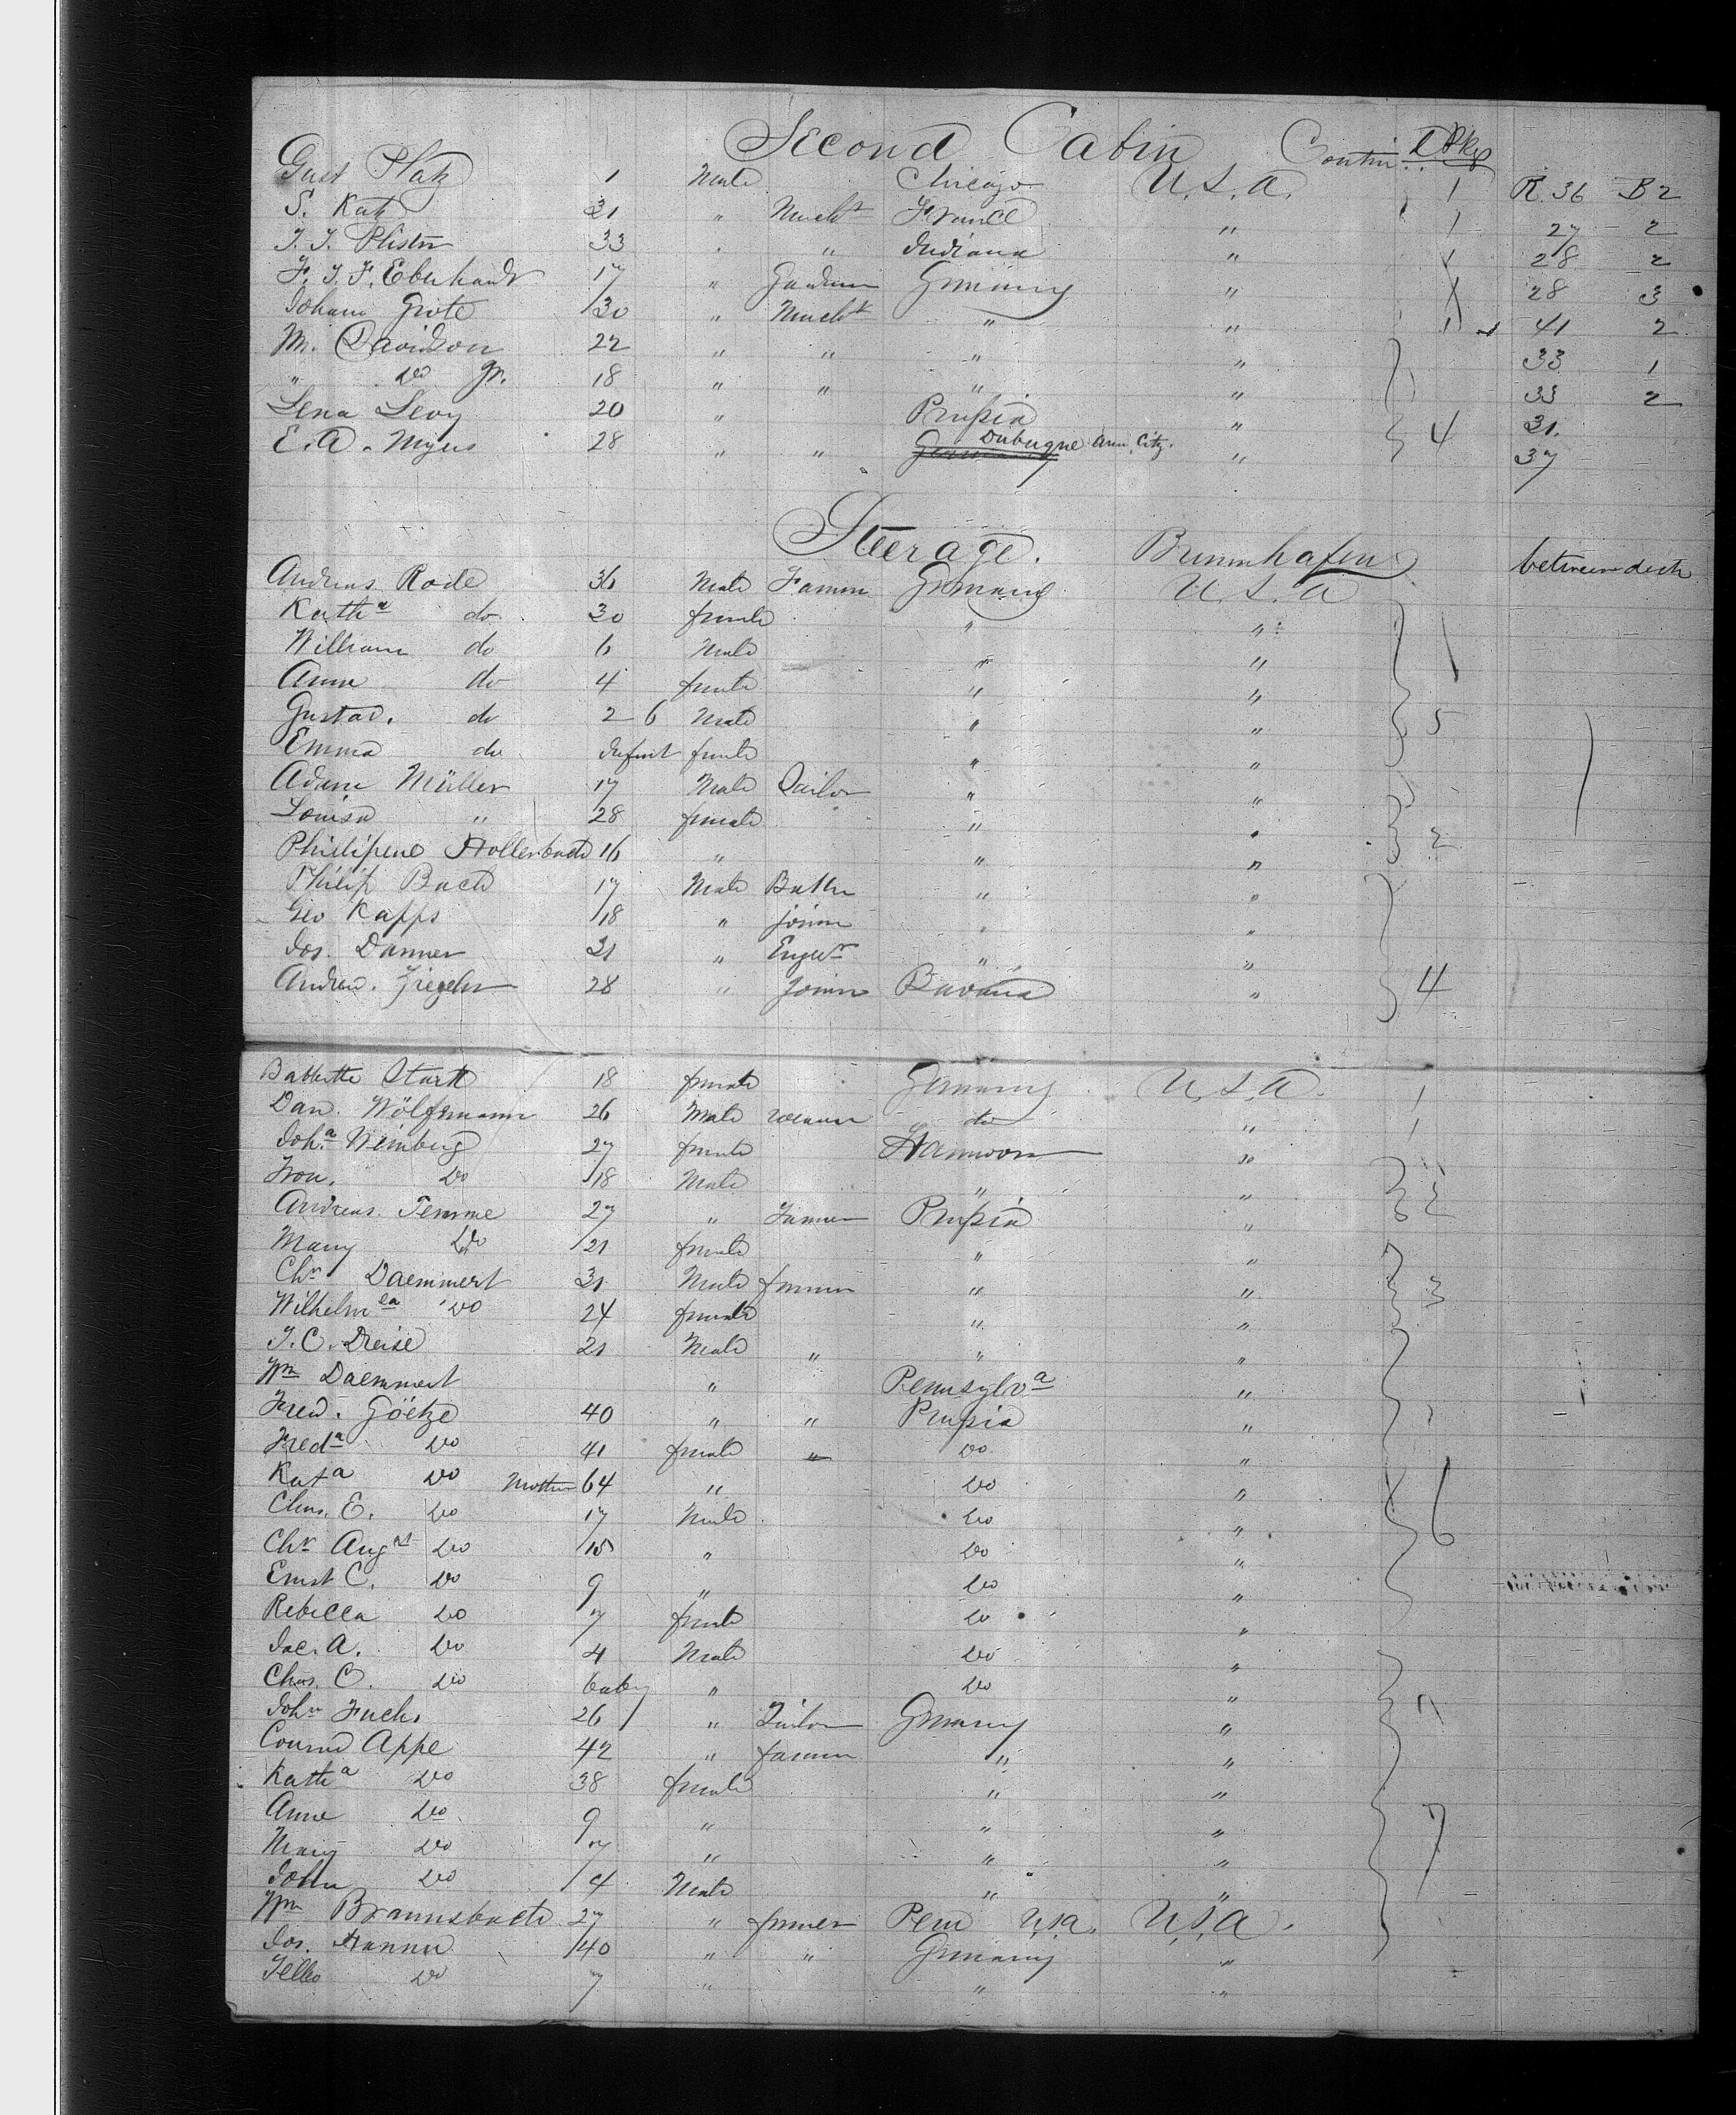 Second Cabin Contin. Pkgs
Gust Platz 1 Male Chicago U.S.A. 1 R. 36 B 2
S. Katz 31 " Mercht France " 1 27 2
J. J. Plister 33 " " Indiana " 1 28 2
F. J. F. Eberhardt 17 " Germany " 1 28 3
Johann Grote 30 " Mercht " " 1 41 2
M. Davidson 22 " " " " 33 1
" Do Jr. 18 " " " " 33 2
Lena Levy 20 " Prussia " 31
E. A. Myers 28 " " Germany Dubuque Am. City. " 4 37
Steerage. Bremerhafen between deck
Andreas Rode 36 Male Farmer Germany U.S.A
Katha do 30 female " "
William do 6 Male " "
Anna do 4 female " "
Gustav. do 2 6 Male " " 5
Emma do Infant female " "
Adam Müller 17 Male Tailor " "
Louisa " 28 female " "
Philipene Hollerbach 16 " " " 2
Philip Bach 17 Male " "
Geo Kapps 18 " joiner " "
Jos. Danner 21 " " "
Andrew. Ziegler 28 " Joiner Bavaria " 4
Babbette Stark 18 female Germany U.S.A. 1
Dan. Wölfsmann 26 Male weaver do " 1
Joha Weinberg 27 female Hannover "
Do 18 Male " " 2
Andreas Temme 27 " Farmer Prussia "
Mary Do 21 female " "
Chr Daemmert 31 Male farmer " " 3
Wilhelmea Do 24 female " "
J. C. Dreise 21 Male " " "
Wm Daemmert " Pennsylva "
Fred. Göetze 40 " " Prussia "
Freda Do 41 female " Do "
Kata Do Mother 64 " Do "
Chas. E. Do 17 Male Do " 6
Chr Augst Do 15 " Do "
Ernst C. Do 9 " Do "
Rebecca Do 7 female Do "
Jac. A. Do 4 Male Do "
Chas. C. Do baby " Do "
John Fuchs 26 " Tailor Germany "
Conrad Appe 42 " farmer " "
Katha Do 38 female " "
Anna Do 9 " " "
Mary Do 7 " " " 7
John Do 4 Male " "
Wm Braunsbach 27 " farmer Penn U.S.A. U.S.A.
Jos. 40 " " Germany "
Do 7 " " "